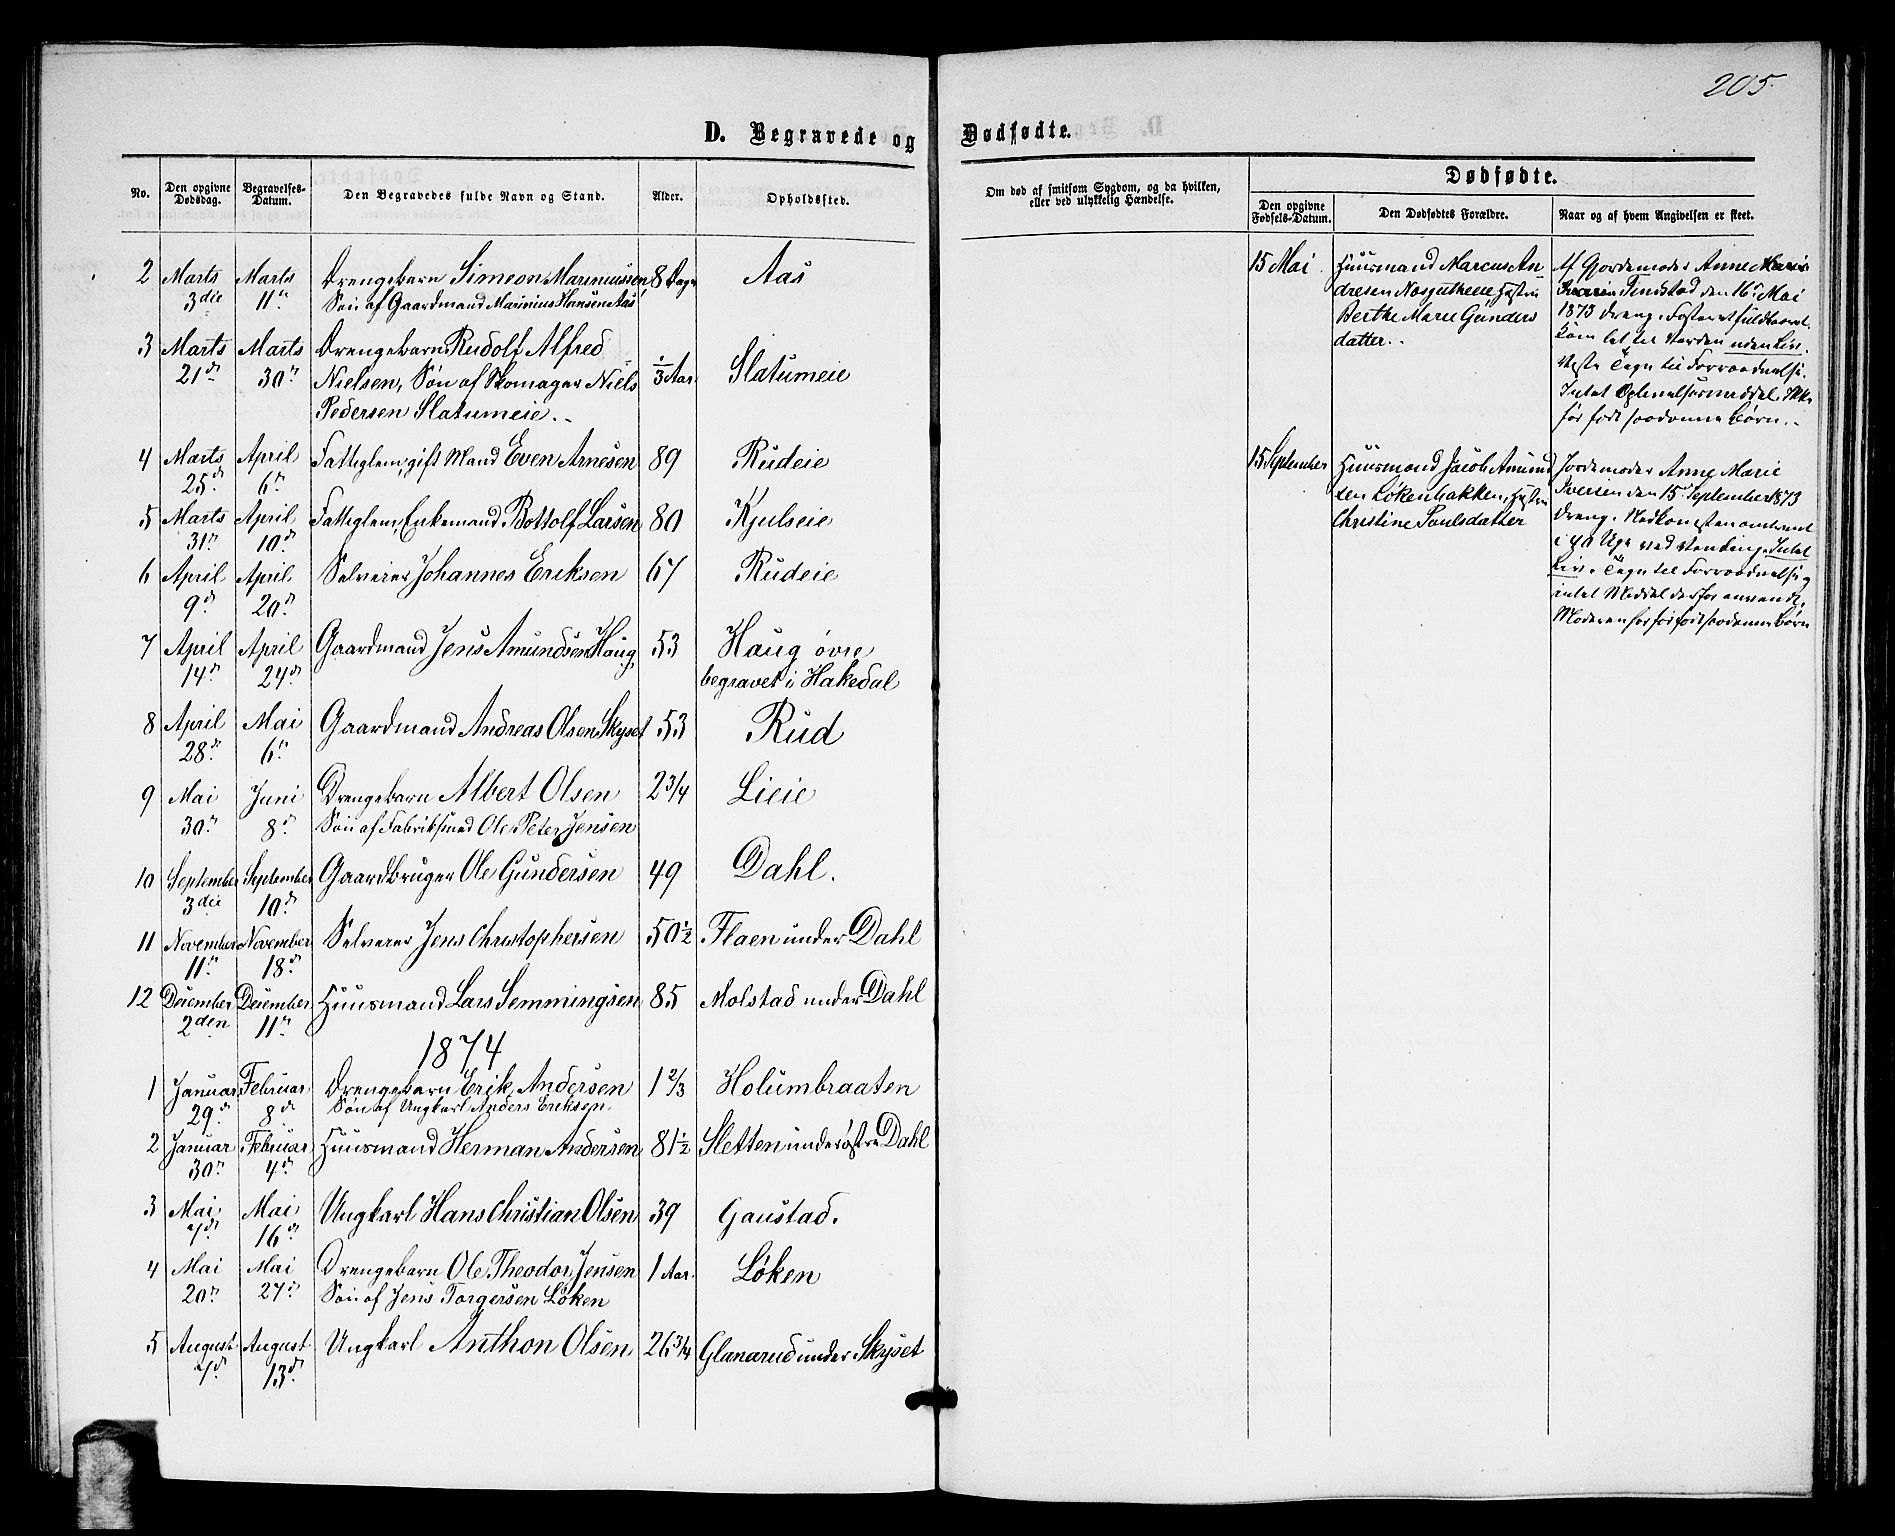 205.
D. Begravede og Dødfødte.
No. Den opgivne Dødsdag. Begravelses-Datum. Den Begravedes fulde Navn og Stand. Alder. Opholdssted.
2 Marts Marts Drengebarn Simeon Marinussen 8 Dage Aas
3die 11te Søn af Gaardmand Marinius Hansen Aas
3 Marts Marts Drengebarn Rudolf Alfred
21de 30te Nielsen, Søn af Skomager Niels 1/3 Aar. Slatumeie
Pedersen Slatumeie.
4 Marts April Fattiglem, gift Mand Even Arnesen 89 Rudeie
25de 6te
5 Marts April Fattiglem, Enkemand Bottolf Larsen 80 Kjulseie
31te 10de
6 April April Selveier Johannes Eriksen 67 Rudeie
9de 20de
7 April April Gaardmand Jens Amundsen Haug 53 Haug øvre
14de 24de begravet i Hakedal
8 April Mai Gaardmand Andreas Olsen Skyset 53 Rud
28de 6te
9 Mai Juni Drengebarn Albert Olsen 2 3/4 Lieie
30te 8de Søn af Fabriksmed Ole Peter Jensen
10 September September Gaardbruger Ole Gundersen 49 Dahl.
3die 10de
11 November November Selveier Jens Christophersen 50 1/2 Flaen under Dahl
11te 18de
12 December December Huusmand Lars Semmingsen 85 Molstad under Dahl
2den 11te
1874
1 Januar Februar Drengebarn Erik Andersen 1 2/3 Holumbraaten
29de 8de Søn af Ungkarl Anders Eriksen.
2 Januar Februar Huusmand Herman Andersen 81 1/2 Sletten under østre Dahl
30te 4de
3 Mai Mai Ungkarl Hans Christian Olsen 39 Gaustad.
7de 16de
4 Mai Mai Drengebarn Ole Theodor Jensen 1 Aar. Løken
20de 27de Søn af Jens Torgersen Løken
5 August August Ungkarl Anthon Olsen 26 3/4 Glanarud under Skyset
7de 13de
Om død af smitsom Sygdom, og da hvilken,
eller ved ulykkelig Hændelse.
Dødfødte.
Den opgivne Fødsels-Datum. Den Dødfødtes Forældre. Naar og af hvem Angivelsen er skeet.
15 Mai Huusmand Marcus An
dresen Hustru
Berthe Marie Gunders
datter.
Af Gjordemoder Anne Marie
Tindstad den 16de Mai
1873 Dreng. Fosteret fuldbaaret.
Kom til Verden uden Liv.
Tegn til Forraadnelse.
Intet Oplivelsesmiddel. Ikke
før født saadanne Børn.
15 September Huusmand Jacob Amund
sen Løkenbakken, Hustru
Christine Paulsdatter
Jordemoder Anne Marie
Iversen den 15de September 1873
Dreng. Nedkomsten omtrent
i 40 Uge ved Vending. Intet
Liv. Tegn til Forraadnelse,
intet Middel derfor anvendt.
Moderen har før født saadanne Børn